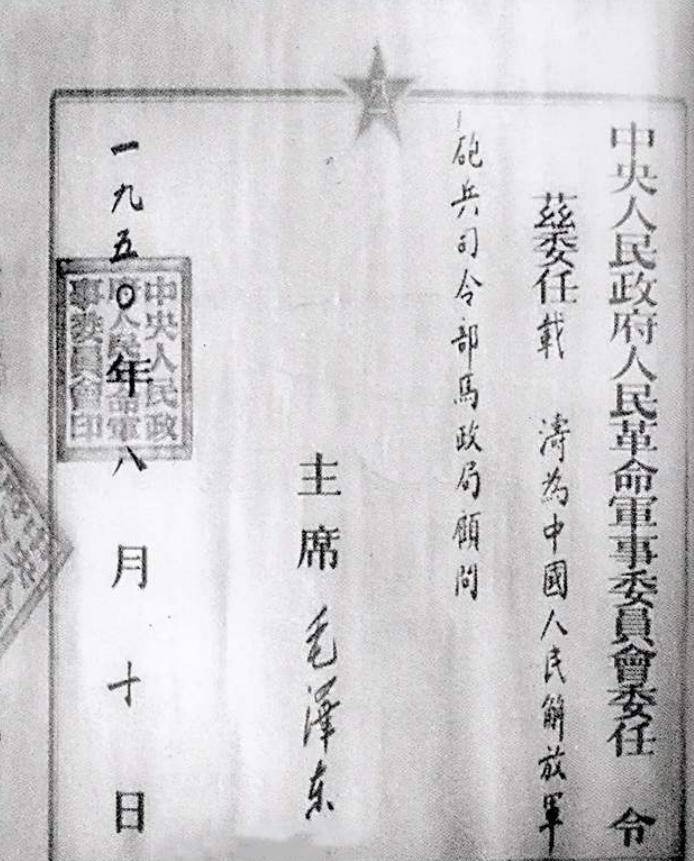 中央人民政府人民革命軍事委員會委任 令
茲委任載 濤為中國人民解放軍
砲兵司令部馬政局顧問
主席 毛澤东
一九五〇年八月十日
中央人民政
府人民革命軍
事委員會印